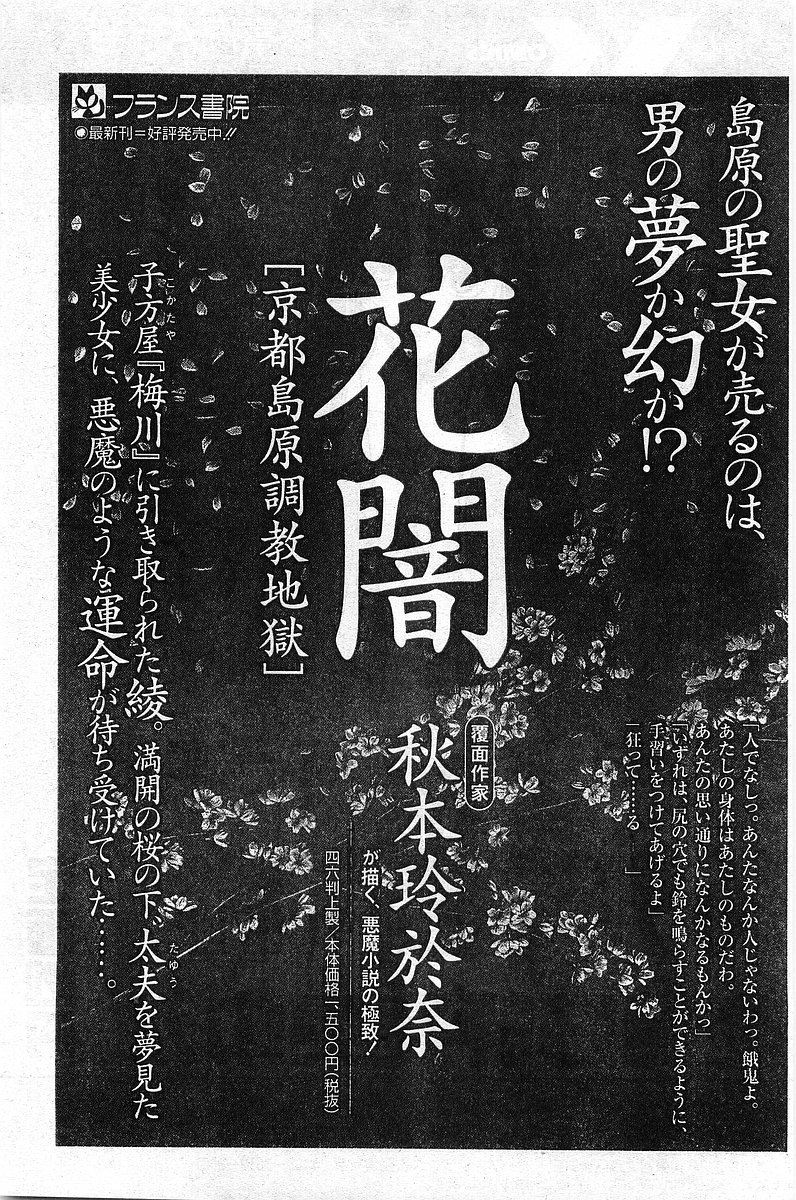 フランス書院
◉最新刊=好評発売中!!
島原の聖女が売るのは、
男の夢か幻か!?
花闇
[京都島原調教地獄]
子方屋『梅川』に引き取られた綾。満開の桜の下、太夫を夢見た
こかたや
たゆう
美少女に、悪魔のような運命が待ち受けていた……。
覆面作家
秋本玲於奈
が描く、悪魔小説の極致!
四六判上製/本体価格一、五〇〇円(税抜)
「人でなしっ。あんたなんか人じゃないわっ。餓鬼よ。
あたしの身体はあたしのものだわ。
あんたの思い通りになんかなるもんかっ」
「いずれは、尻の穴でも鈴を鳴らすことができるように、
手習いをつけてあげるよ」
「狂って……る　」